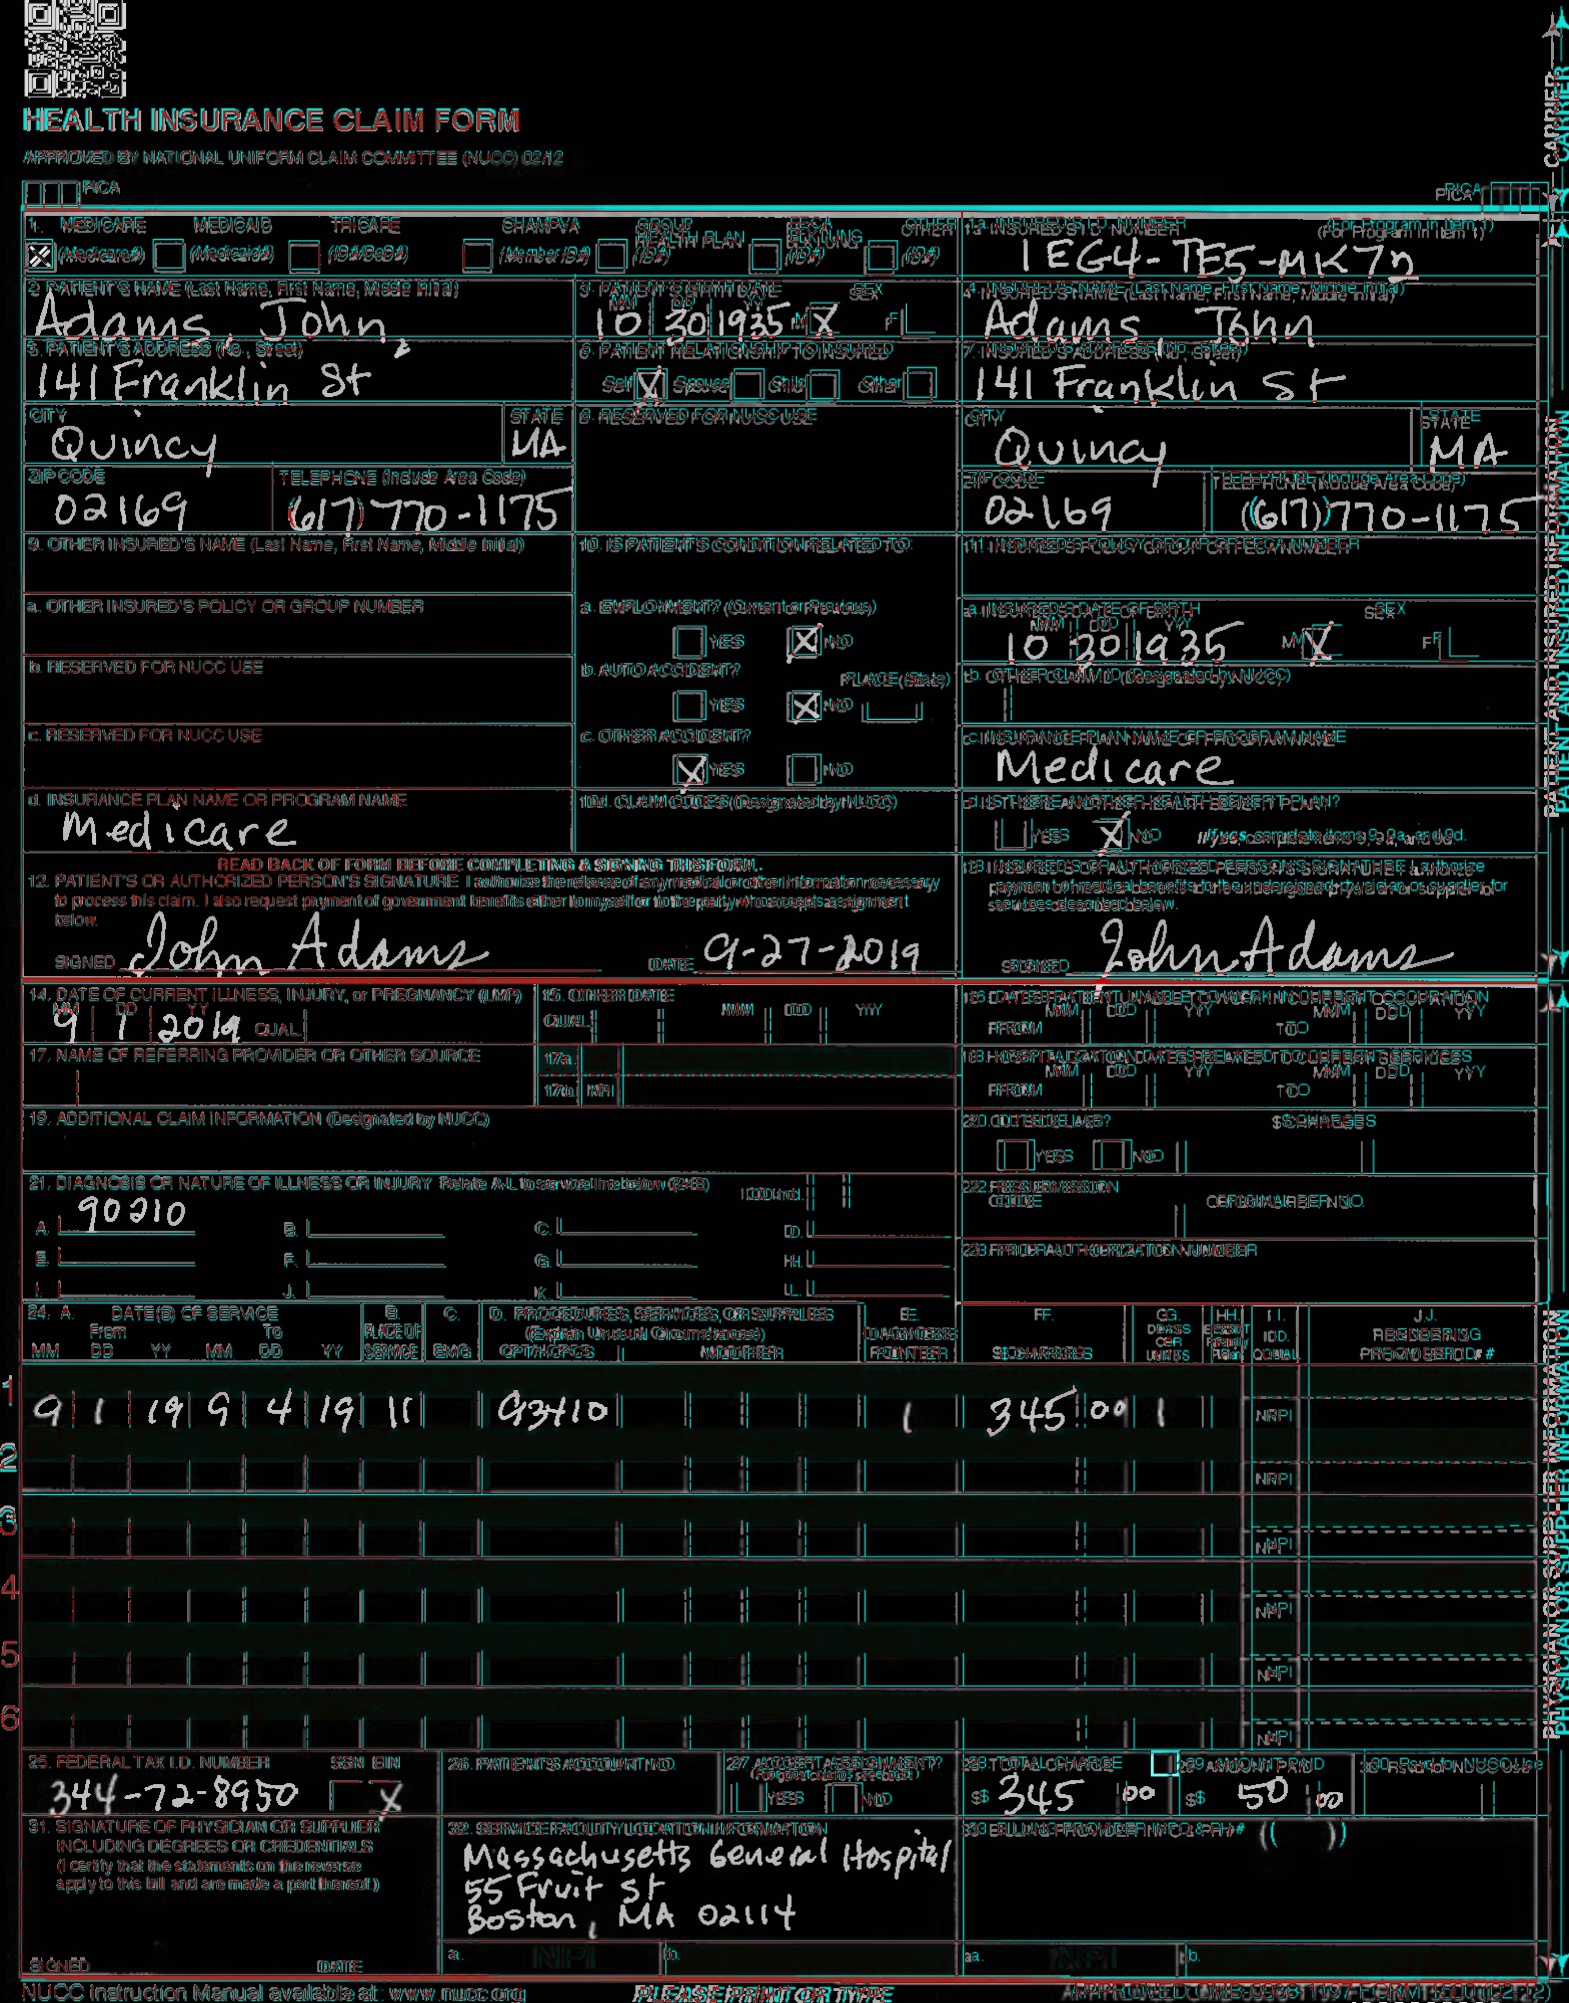 HEALTH INSURANCE CLAIM FORM
APPROVED BY NATIONAL UNIFORM CLAIM COMMITTEE (NUCC) 02/12
PICA PICA
CARRIER
1. MEDICARE MEDICAID TRICARE CHAMPVA GROUP HEALTH PLAN FECA BLK LUNG OTHER
(Medicare#) (Medicaid#) (ID#/DoD#) (Member ID#) (ID#) (ID#) (ID#)
1a. INSURED'S I.D. NUMBER (For Program in Item 1)
1EG4-TE5-MK72
2. PATIENT'S NAME (Last Name, First Name, Middle Initial)
Adams, John,
3. PATIENT'S BIRTH DATE SEX
MM DD YY
10 30 1935 M X F
4. INSURED'S NAME (Last Name, First Name, Middle Initial)
Adams, John
5. PATIENT'S ADDRESS (No., Street)
141 Franklin St
6. PATIENT RELATIONSHIP TO INSURED
Self X Spouse Child Other
7. INSURED'S ADDRESS (No., Street)
141 Franklin St
CITY STATE
Quincy MA
8. RESERVED FOR NUCC USE
CITY STATE
Quincy MA
ZIP CODE TELEPHONE (Include Area Code)
02169 (617) 770-1175
ZIP CODE TELEPHONE (Include Area Code)
02169 (617) 770-1175
9. OTHER INSURED'S NAME (Last Name, First Name, Middle Initial)
10. IS PATIENT'S CONDITION RELATED TO:
11. INSURED'S POLICY GROUP OR FECA NUMBER
a. OTHER INSURED'S POLICY OR GROUP NUMBER
a. EMPLOYMENT? (Current or Previous)
YES X NO
a. INSURED'S DATE OF BIRTH SEX
MM DD YY
10 30 1935 M X F
b. RESERVED FOR NUCC USE
b. AUTO ACCIDENT? PLACE (State)
YES X NO
b. OTHER CLAIM ID (Designated by NUCC)
c. RESERVED FOR NUCC USE
c. OTHER ACCIDENT?
X YES NO
c. INSURANCE PLAN NAME OR PROGRAM NAME
Medicare
d. INSURANCE PLAN NAME OR PROGRAM NAME
Medicare
10d. CLAIM CODES (Designated by NUCC)
d. IS THERE ANOTHER HEALTH BENEFIT PLAN?
YES X NO If yes, complete items 9, 9a, and 9d.
READ BACK OF FORM BEFORE COMPLETING & SIGNING THIS FORM.
12. PATIENT'S OR AUTHORIZED PERSON'S SIGNATURE I authorize the release of any medical or other information necessary
to process this claim. I also request payment of government benefits either to myself or to the party who accepts assignment
below.
SIGNED John Adams DATE 9-27-2019
13. INSURED'S OR AUTHORIZED PERSON'S SIGNATURE I authorize
payment of medical benefits to the undersigned physician or supplier for
services described below.
SIGNED John Adams
PATIENT AND INSURED INFORMATION
14. DATE OF CURRENT ILLNESS, INJURY, or PREGNANCY (LMP)
MM DD YY
9 1 2019 QUAL.
15. OTHER DATE
QUAL. MM DD YY
16. DATES PATIENT UNABLE TO WORK IN CURRENT OCCUPATION
MM DD YY MM DD YY
FROM TO
17. NAME OF REFERRING PROVIDER OR OTHER SOURCE
17a.
17b. NPI
18. HOSPITALIZATION DATES RELATED TO CURRENT SERVICES
MM DD YY MM DD YY
FROM TO
19. ADDITIONAL CLAIM INFORMATION (Designated by NUCC)
20. OUTSIDE LAB? $ CHARGES
YES NO
21. DIAGNOSIS OR NATURE OF ILLNESS OR INJURY Relate A-L to service line below (24E) ICD Ind.
A. 90210 B. C. D.
E. F. G. H.
I. J. K. L.
22. RESUBMISSION CODE ORIGINAL REF. NO.
23. PRIOR AUTHORIZATION NUMBER
24. A. DATE(S) OF SERVICE B. C. D. PROCEDURES, SERVICES, OR SUPPLIES E. F. G. H. I. J.
From To PLACE OF (Explain Unusual Circumstances) DIAGNOSIS DAYS OR EPSDT Family ID. RENDERING
MM DD YY MM DD YY SERVICE EMG CPT/HCPCS MODIFIER POINTER $ CHARGES UNITS Plan QUAL. PROVIDER ID. #
1 9 1 19 9 4 19 11 93410 1 345 00 1 NPI
2 NPI
3 NPI
4 NPI
5 NPI
6 NPI
25. FEDERAL TAX I.D. NUMBER SSN EIN
344-72-8950 X
26. PATIENT'S ACCOUNT NO.
27. ACCEPT ASSIGNMENT?
(For govt. claims, see back)
YES NO
28. TOTAL CHARGE
$ 345 00
29. AMOUNT PAID
$ 50 00
30. Rsvd for NUCC Use
31. SIGNATURE OF PHYSICIAN OR SUPPLIER
INCLUDING DEGREES OR CREDENTIALS
(I certify that the statements on the reverse
apply to this bill and are made a part thereof.)
SIGNED DATE
32. SERVICE FACILITY LOCATION INFORMATION
Massachusetts General Hospital
55 Fruit St
Boston, MA 02114
a. NPI b.
33. BILLING PROVIDER INFO & PH # ( )
a. NPI b.
PHYSICIAN OR SUPPLIER INFORMATION
NUCC Instruction Manual available at: www.nucc.org
PLEASE PRINT OR TYPE